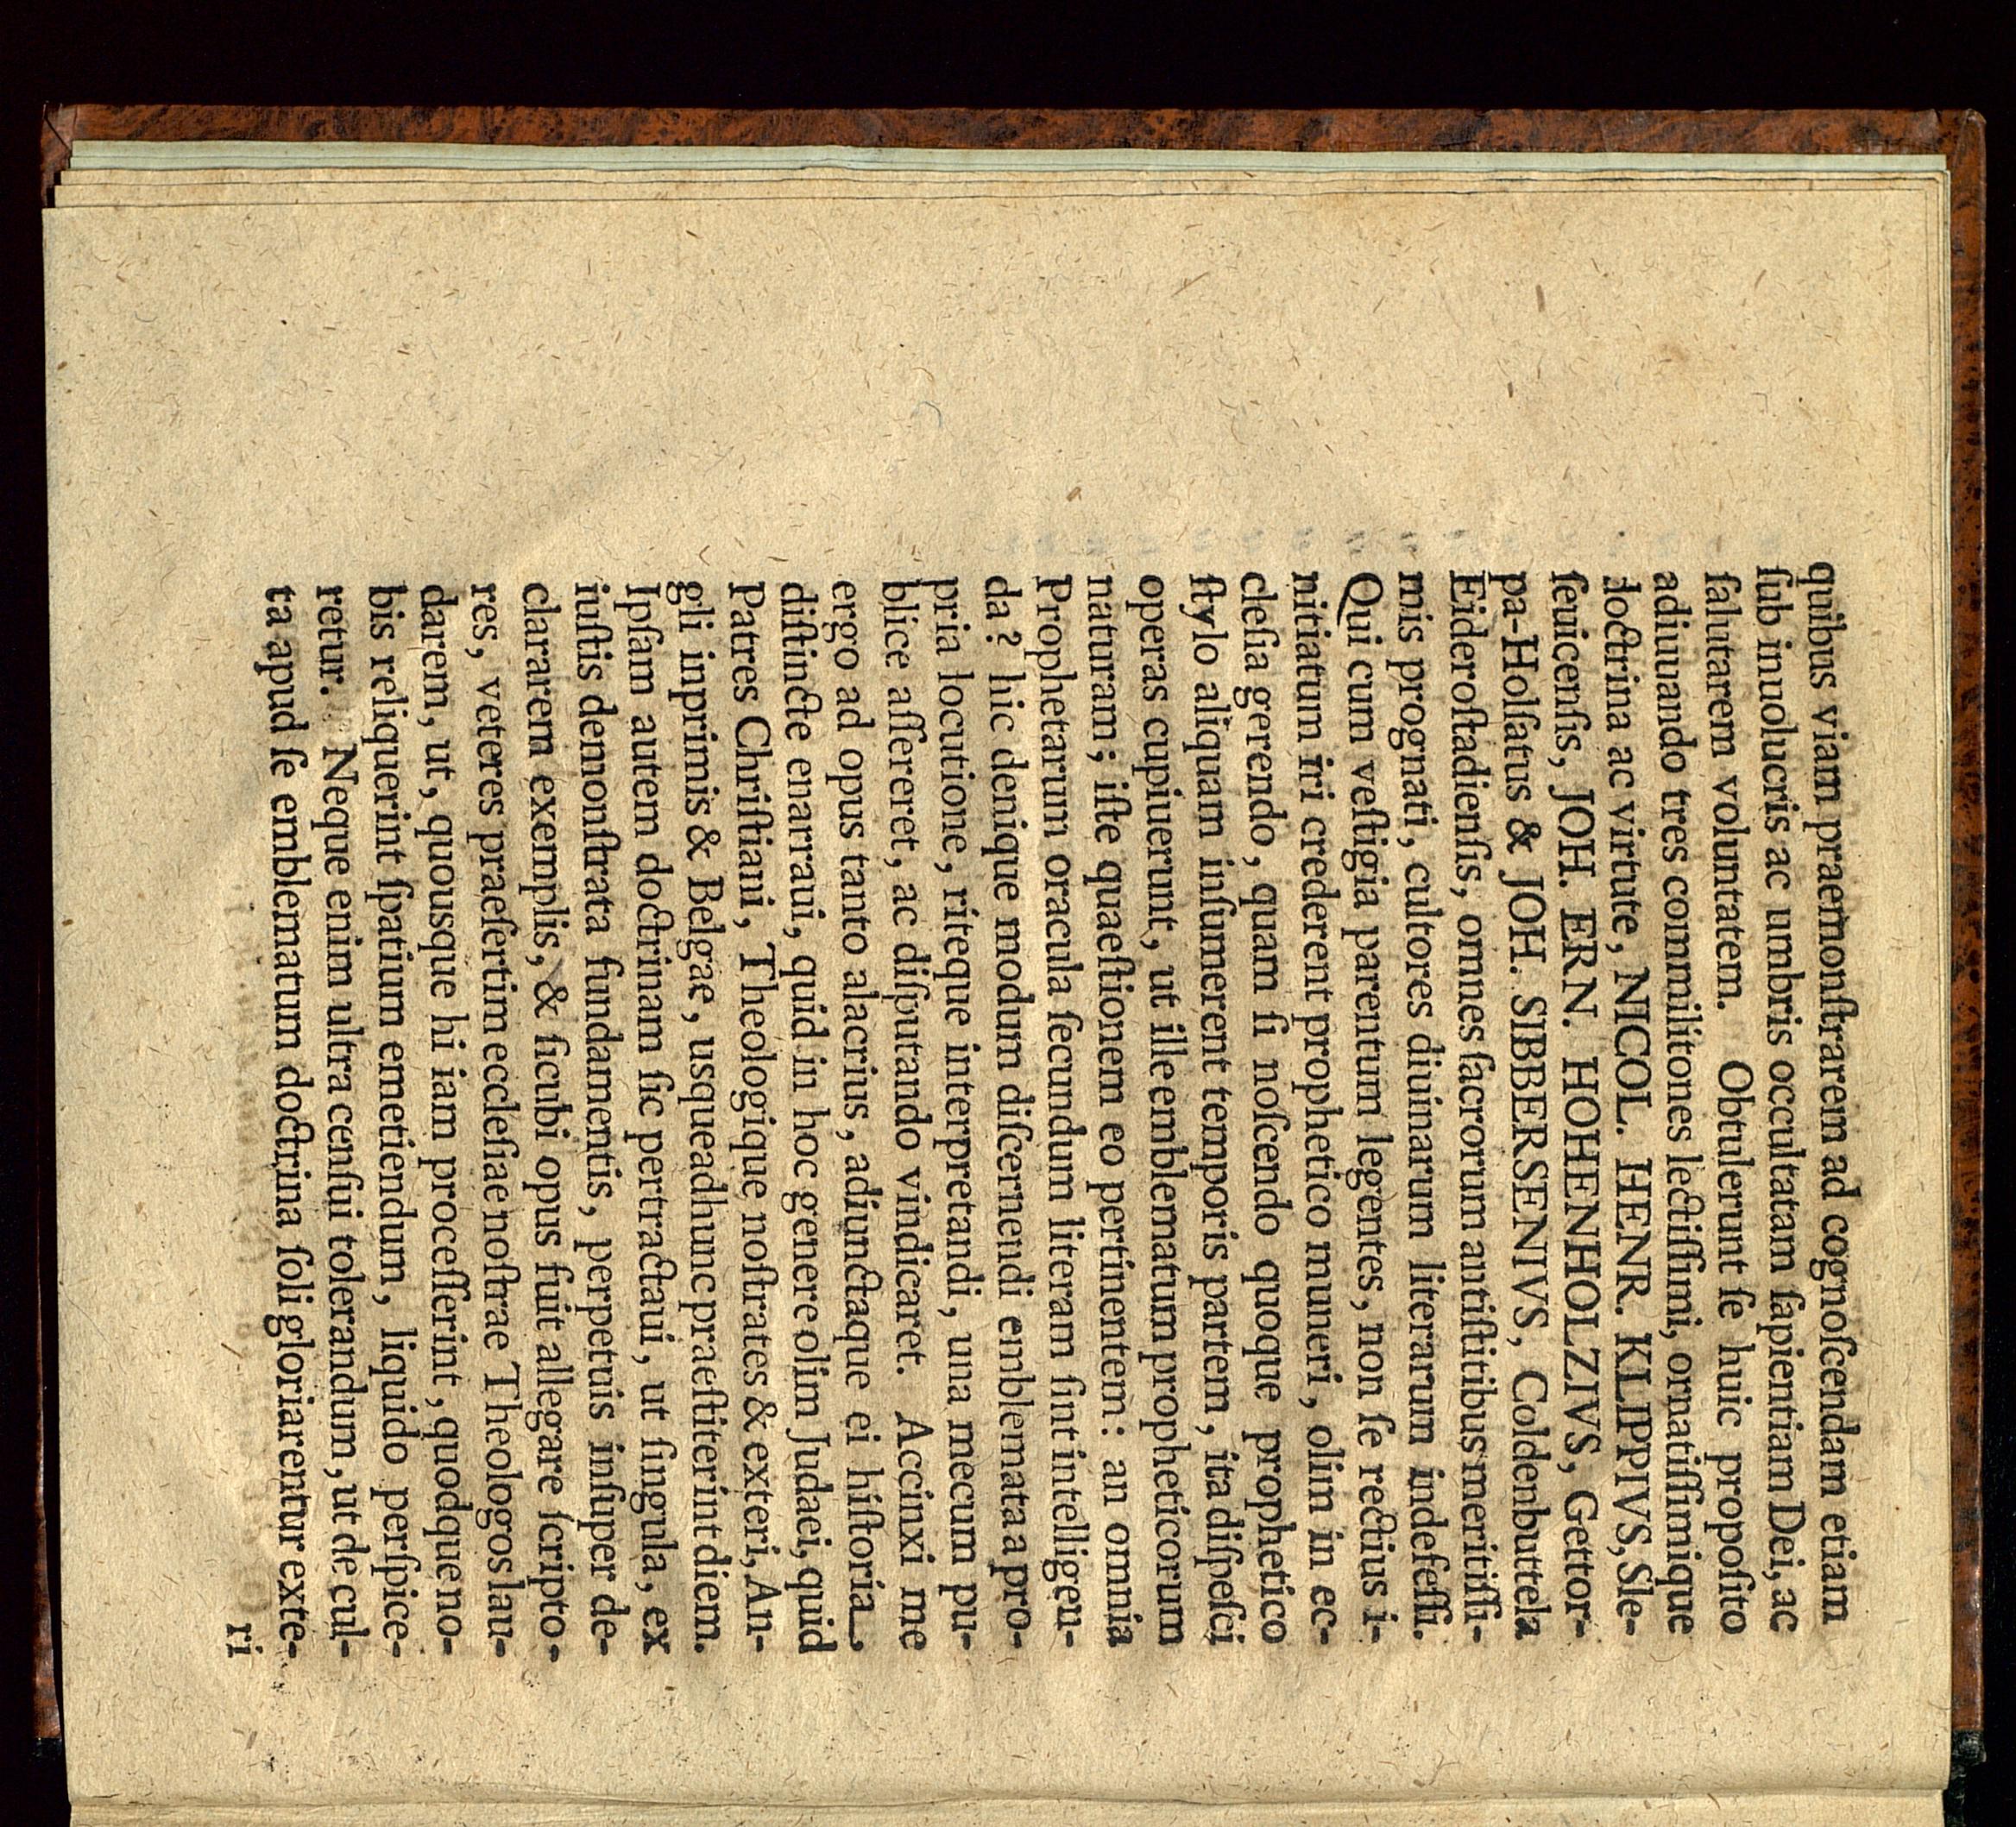 quibus viam praemonſtrarem ad cognoſcendam etiam
ſub inuolucris ac umbris occultatam ſapientiam Dei, ac
ſalutarem voluntatem. Obtulerunt ſe huic propoſito
adiuuando tres commilitones lectiſſimi, ornatiſſimique
doctrina ac virtute, NICOL. HENR. KLIPPIVS, Sle-
ſeuicenſis, JOH. ERN. HOHENHOLZIVS, Gettor-
pa-Holſatus & JOH. SIBBERSENIVS, Coldenbuttela
Eideroſtadienſis, omnes ſacrorum antiſtitibus meritiſſi-
mis prognati, cultores diuinarum literarum indefeſſi.
Qui cum veſtigia parentum legentes, non ſe rectius i-
nitiatum iri crederent prophetico muneri, olim in ec-
cleſia gerendo, quam ſi noſcendo quoque prophetico
ſtylo aliquam inſumerent temporis partem, ita diſpeſci
operas cupiuerunt, ut ille emblematum propheticorum
naturam; iſte quaeſtionem eo pertinentem: an omnia
Prophetarum oracula ſecundum literam ſint intelligen-
da? hic denique modum diſcernendi emblemata a pro-
pria locutione, riteque interpretandi, una mecum pu-
blice aſſereret, ac diſputando vindicaret. Accinxi me
ergo ad opus tanto alacrius, adiunctaque ei hiſtoria,
diſtincte enarraui, quid in hoc genere olim Judaei, quid
Patres Chriſtiani, Theologique noſtrates & exteri, An-
gli inprimis & Belgae, usque adhunc praeſtiterint diem.
Ipſam autem doctrinam ſic pertractaui, ut ſingula, ex
iuſtis demonſtrata fundamentis, perpetuis inſuper de-
clararem exemplis, & ſicubi opus fuit allegare ſcripto-
res, veteres praeſertim eccleſiae noſtrae Theologos lau-
darem, ut, quousque hi iam proceſſerint, quodque no-
bis reliquerint ſpatium emetiendum, liquido perſpice-
retur. Neque enim ultra cenſui tolerandum, ut de cul-
ta apud ſe emblematum doctrina ſoli gloriarentur exte-
ri